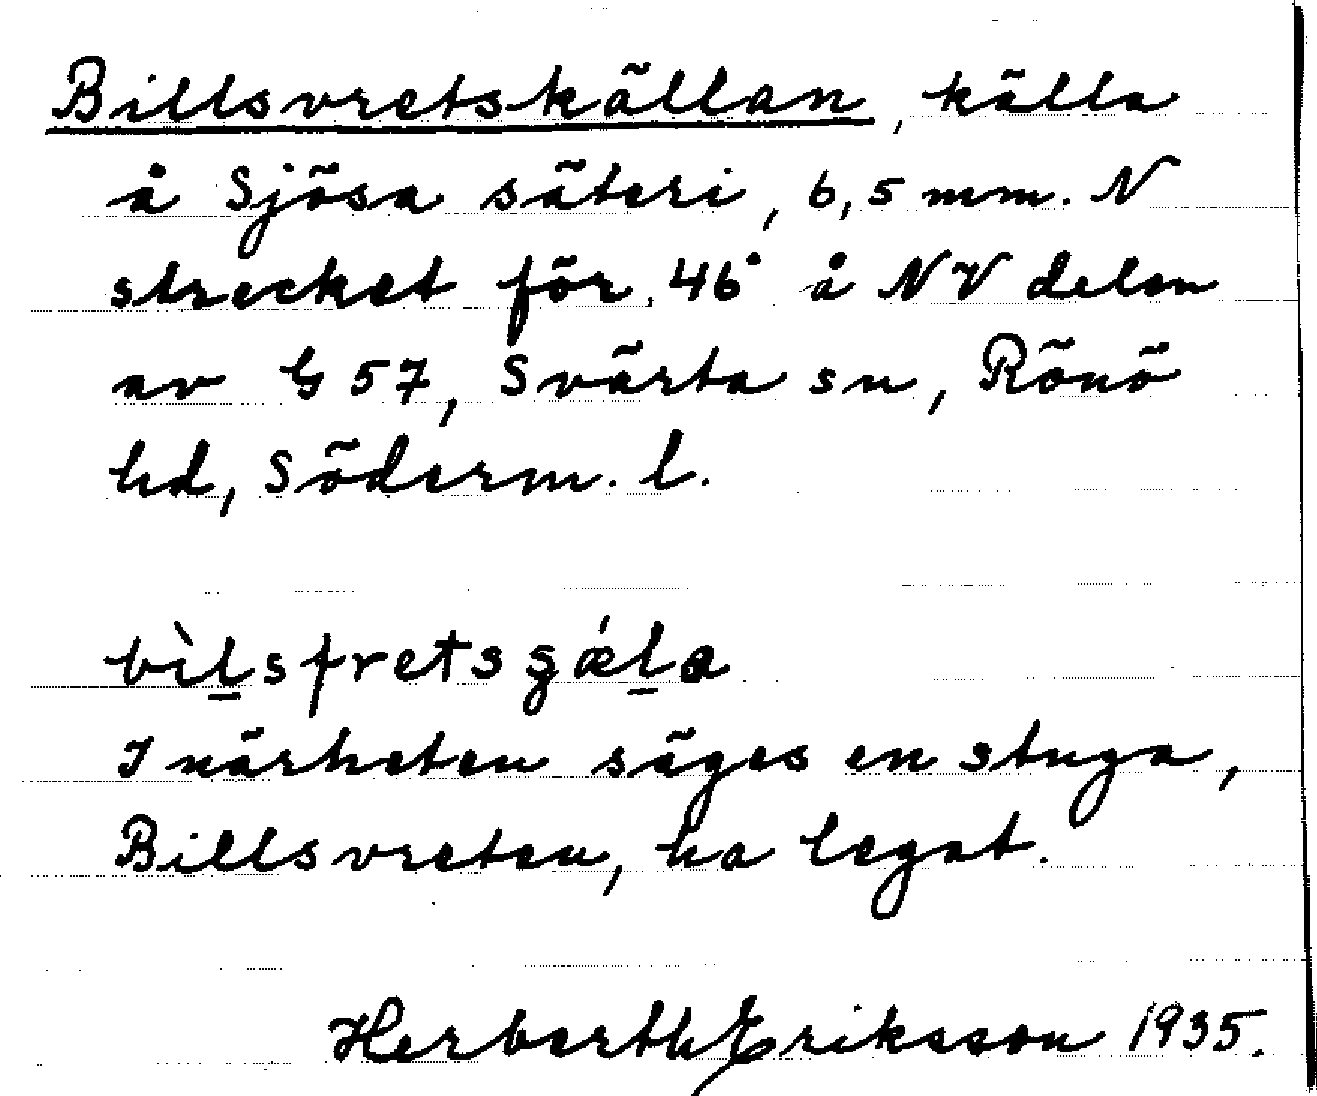 Billsvretskällan, källa
å Sjösa säteri, 6,5 mm. N
strecket för 46° å NV delen
av G 57, Svärta sn, Rönö
hd, Söderm. l.
bìl̲sfretsgǽl̲a
I närheten säges en stuga,
Billsvreten, ha legat.
Herberth Eriksson 1935.